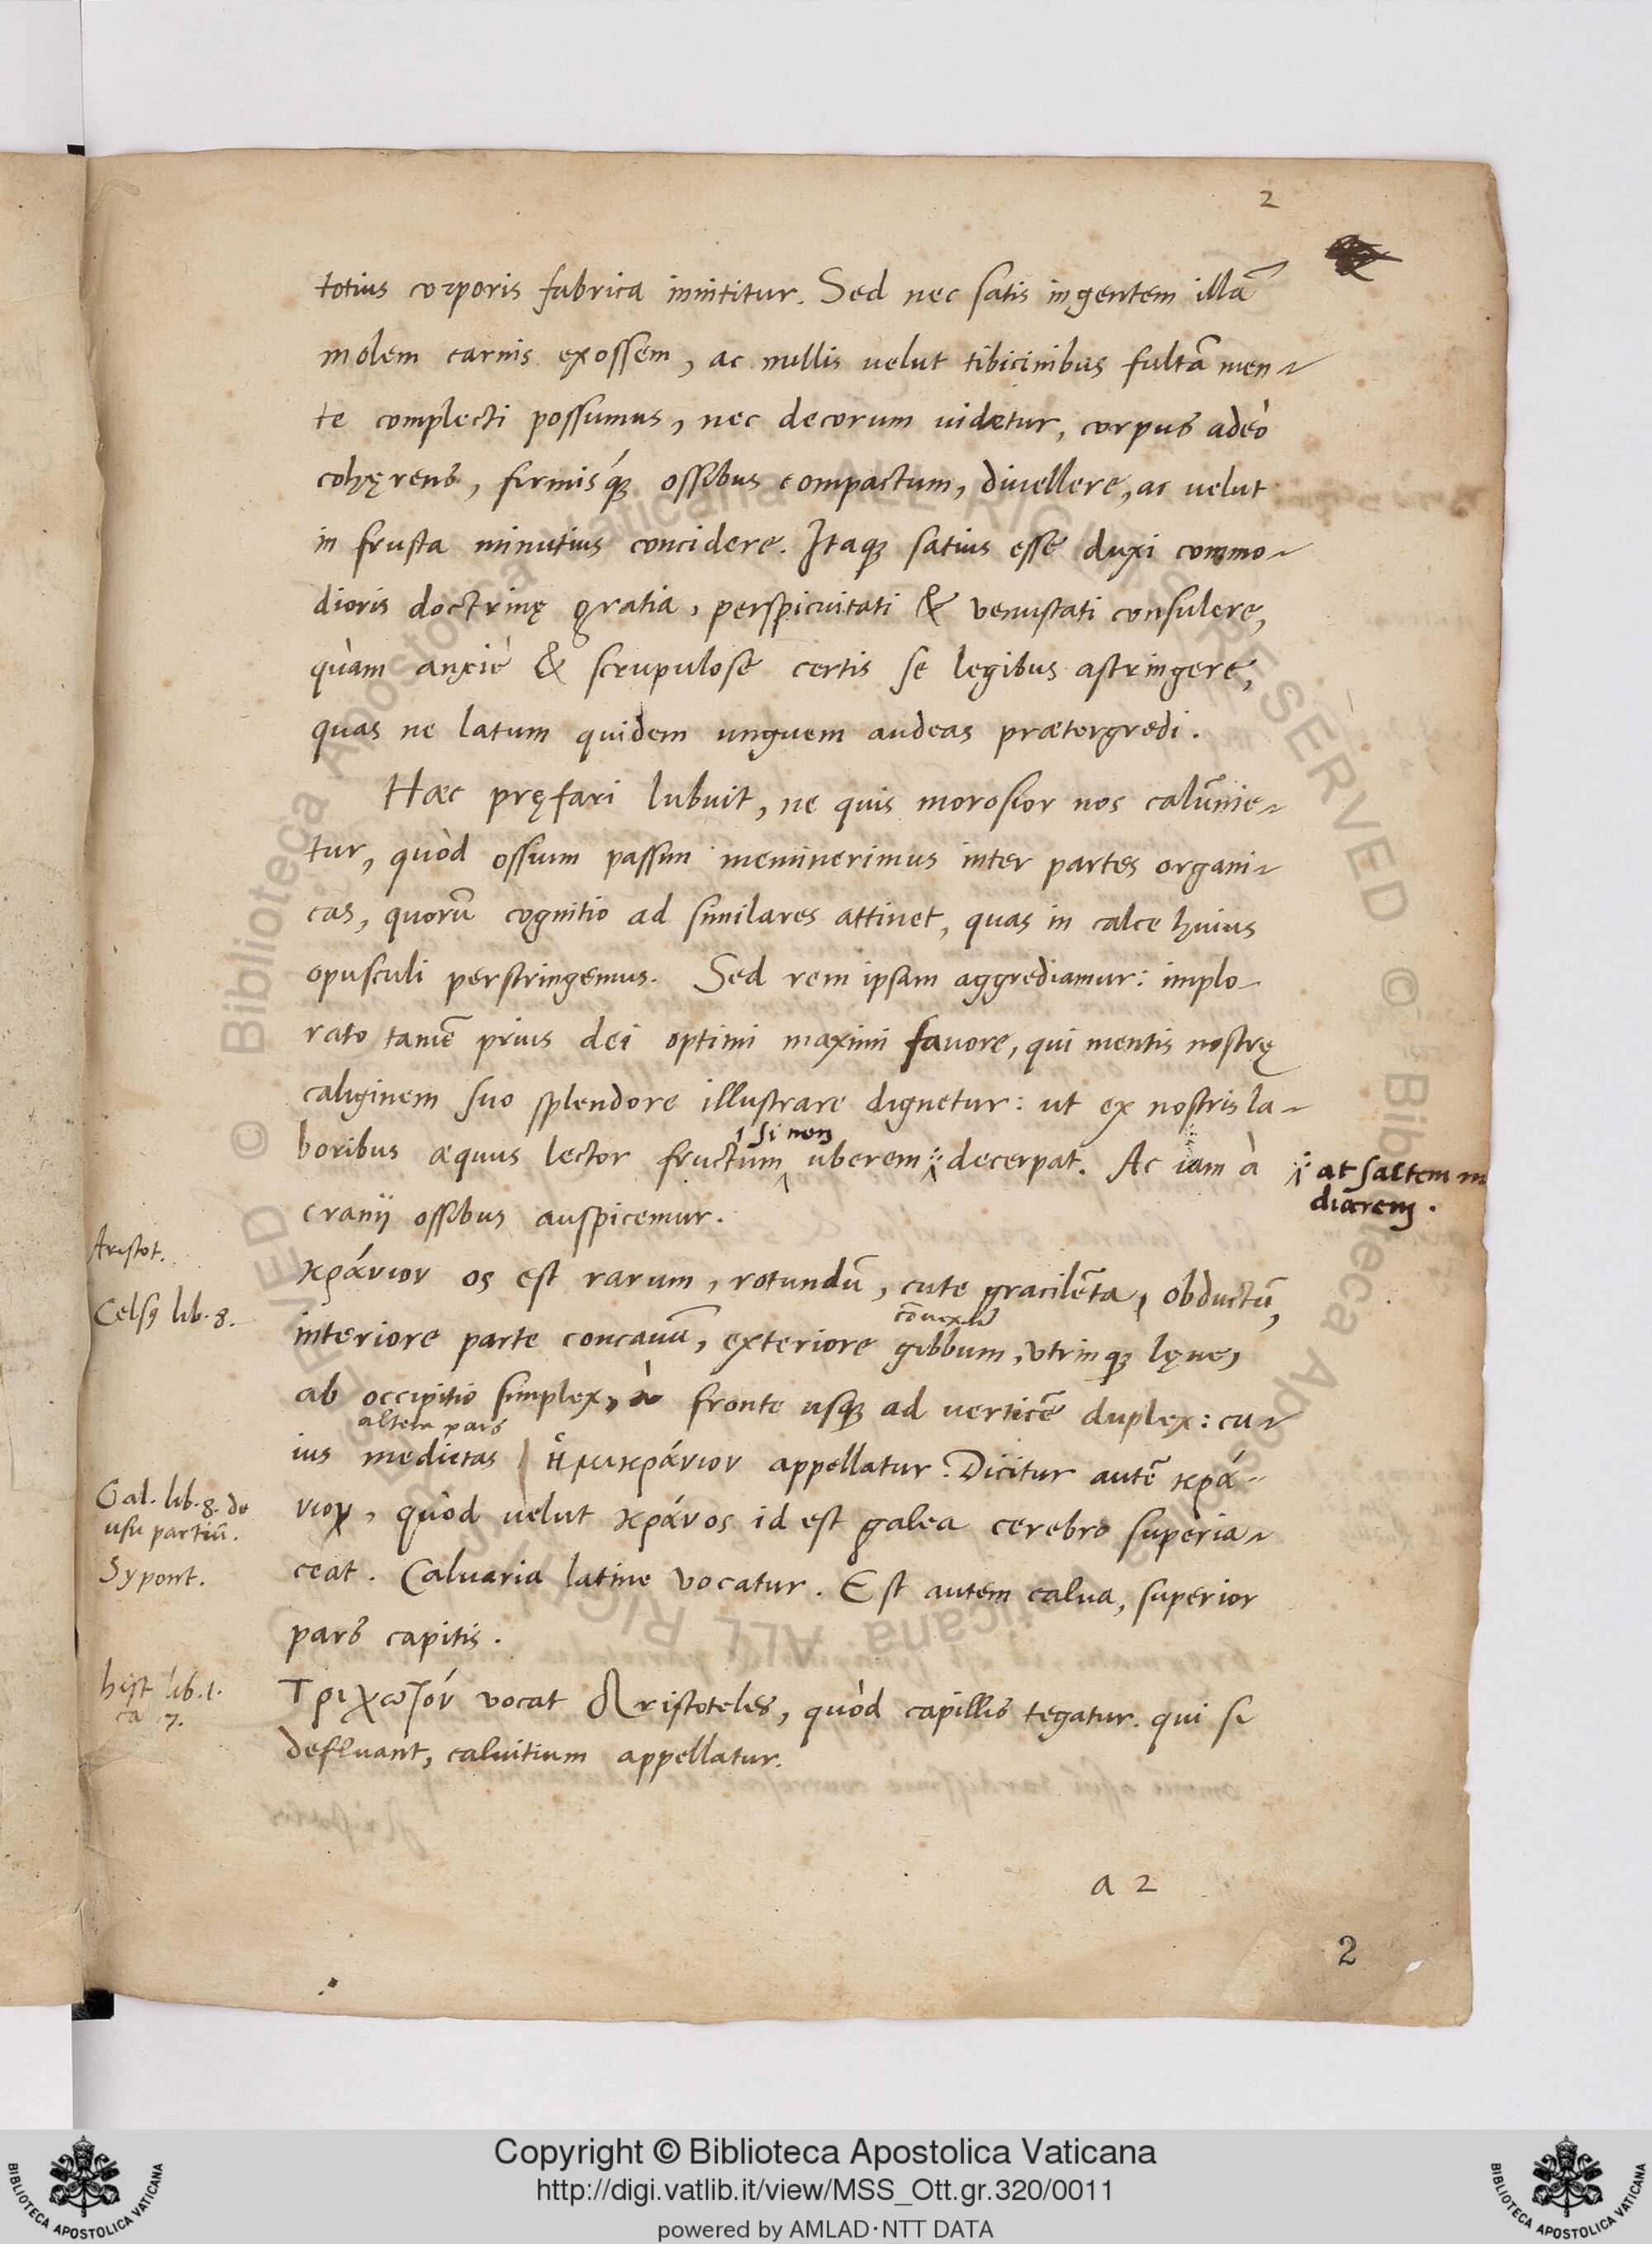 2
totius corporis fabrica innititur. Sed nec satis ingentem illā
molem carnis exossem, ac nullis velut tibicinibus fultā men-
te complecti possumus, nec decorum videtur, corpus adeò
cohęrens, firmisq́; ossibus compactum, divellere, ac velut
in frusta minutius concidere. Itaq; satius esse duxi commo-
dioris doctrinę gratia, perspicuitati & venustati consulere,
quàm anxiè & scrupulosè certis se legibus astringere,
quas ne latum quidem unguem audeas prætergredi.
Hæc pręfari lubuit, ne quis morosior nos calūnie-
tur, quòd ossium passim meminerimus inter partes organi-
cas, quorū cognitio ad similares attinet, quas in calce huius
opusculi perstringemus. Sed rem ipsam aggrediamur: implo-
rato tamē prius dei optimi maximi favore, qui mentis nostrę
caliginem suo splendore illustrare dignetur: ut ex nostris la-
si non
boribus æquus lector fructum uberem decerpat. Ac iam à
at saltem m
diocrem.
cranii ossibus auspicemur.
Aristot.
κράνιον os est rarum, rotundū, cute gracilēta, obductū,
Cels9 lib. 8.
cōvexū
interiore parte concavū, exteriore gibbum, utrinq; lęve,
ab occipitio simplex, à fronte usq; ad verticē duplex: cu-
altera pars
ius medietas ἡμικράνιον appellatur. Dicitur autē κρά-
Gal. lib. 8. de
usu partiū.
νιον, quòd velut κράνος id est galea cerebro superia-
Sypont.
ceat. Calvaria latine vocatur. Est autem calva, superior
pars capitis.
hist lib. 1.
ca 7.
Τριχωτόν vocat Aristoteles, quòd capillis tegatur. qui si
defluant, calvitium appellatur.
a 2
2
© Biblioteca Apostolica Vaticana ALL RIGHTS RESERVED © Biblioteca Apostolica Vaticana ALL RIGHTS RESERVED
Copyright © Biblioteca Apostolica Vaticana
http://digi.vatlib.it/view/MSS_Ott.gr.320/0011
powered by AMLAD·NTT DATA
BIBLIOTECA APOSTOLICA VATICANA
BIBLIOTECA APOSTOLICA VATICANA